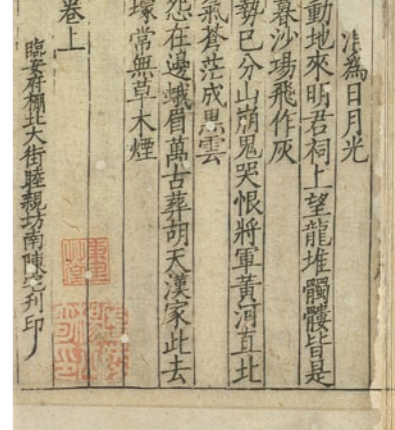 為日月光
動地來明君祠上望龍堆髑髏皆是
暮沙場飛作灰
勢已分山崩鬼哭恨將軍黃河直北
氣蒼茫成黑雲
怨在邊蛾眉萬古葬胡天漢家此去
塚常無草木煙
卷上
臨安府棚北大街睦親坊南陳宅刊印